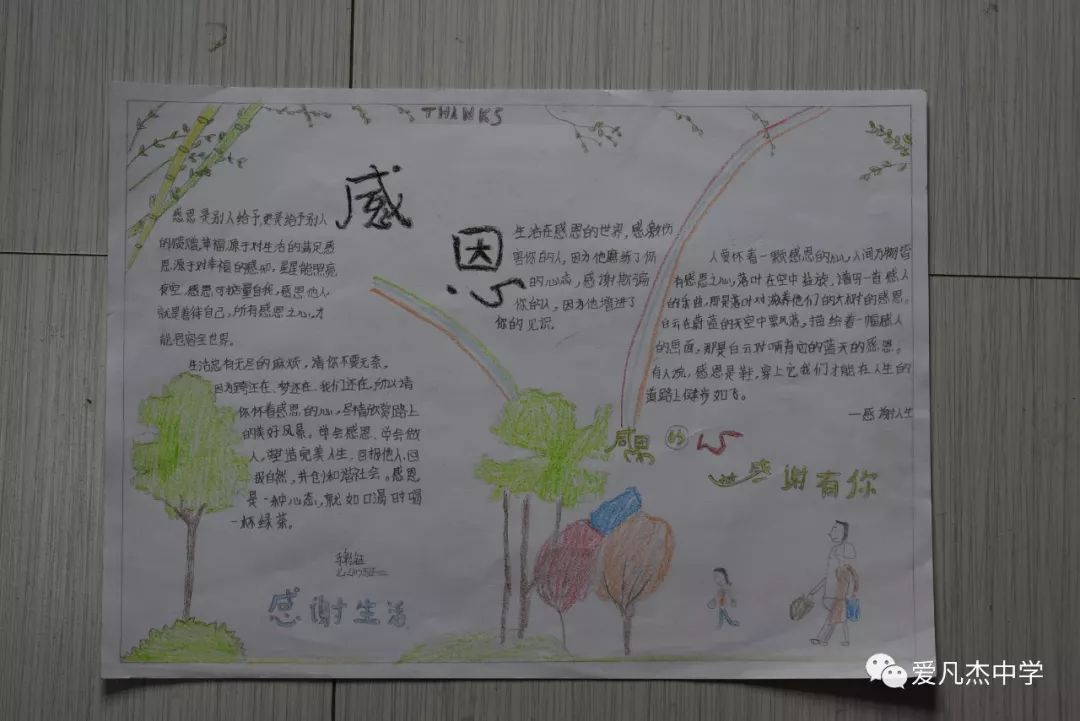 THANKS
感恩
感恩是别人给予,更是给予别人
的烦恼,幸福源于对生活的满足感
恩源于对幸福的感知,星星能照亮
夜空,感恩可掂量自我,感恩他人
就是善待自己,所有感恩之心,才
能包容全世界。
生活总有无尽的麻烦,请你不要无奈,
因为路还在、梦还在、我们还在,所以请
你怀着感恩的心,尽情欣赏路上
的美好风景。学会感恩、学会做
人,塑造完美人生、回报他人、回
报自然,共创和谐社会。感恩
是一种心态,就如口渴时喝
一杯绿茶。
感谢生活
生活在感恩的世界,感激伤
害你的人,因为他磨练了你
的心态,感谢欺骗
你的人,因为他增进了
你的见识。
人要怀着一颗感恩的心,人间万物皆
有感恩之心,落叶在空中盘旋,谱写一首感人
的乐曲,那是落叶对滋养他们的大树的感恩。
白云在蔚蓝的天空中飘荡,描绘着一幅感人
的画面,那是白云对哺育它的蓝天的感恩。
有人说,感恩是鞋,穿上它我们才能在人生的
道路上健步如飞。
一感谢人生
感恩的心
感谢有你
爱凡杰中学